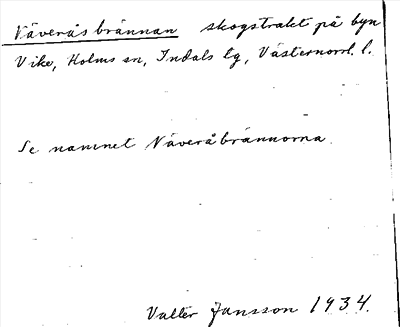 Näveråsbrännan skogstrakt på byn
Vike, Holms sn, Indals tg, Västernorrl. l.
Se namnet Näveråbrännorna.
Valter Jansson 1934.